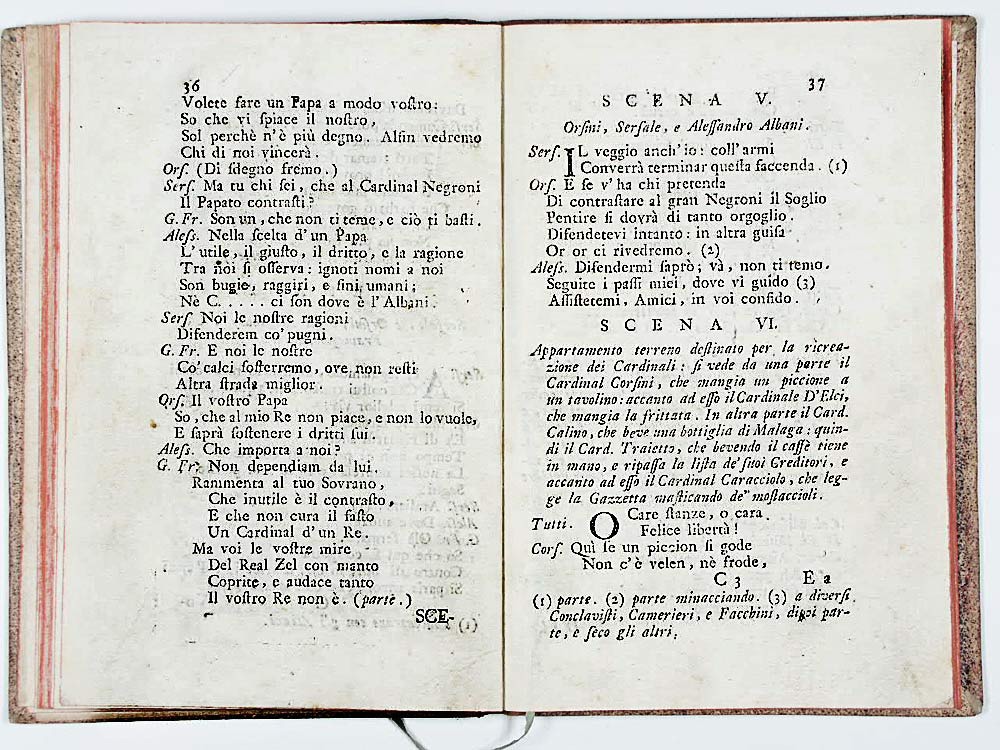 36
Volete fare un Papa a modo vostro:
So che vi spiace il nostro,
Sol perchè n'è più degno. Alfin vedremo
Chi di noi vincerà.
Ors. (Di sdegno fremo.)
Sers. Ma tu chi sei, che al Cardinal Negroni
Il Papato contrasti?
G. Fr. Son un, che non ti teme, e ciò ti basti.
Aless. Nella scelta d'un Papa
L'utile, il giusto, il dritto, e la ragione
Tra noi si osserva: ignoti nomi a noi
Son bugie, raggiri, e fini umani;
Nè C. . . . . ci son dove è l'Albani.
Sers. Noi le nostre ragioni
Difenderem co' pugni.
G. Fr. E noi le nostre
Co' calci sosterremo, ove non resti
Altra strada miglior.
Ors. Il vostro Papa
So, che al mio Re non piace, e non lo vuole,
E saprà sostenere i dritti sui.
Aless. Che importa a noi?
G. Fr. Non dependiam da lui.
Rammenta al tuo Sovrano,
Che inutile è il contrasto,
E che non cura il fasto
Un Cardinal d'un Re.
Ma voi le vostre mire
Del Real Zel con manto
Coprite, e audace tanto
Il vostro Re non è. (parte.)
SCE-
37
SCENA V.
Orsini, Sersale, e Alessandro Albani.
Sers. IL veggio anch'io: coll'armi
Converrà terminar questa faccenda. (1)
Ors. E se v'ha chi pretenda
Di contrastare al gran Negroni il Soglio
Pentire si dovrà di tanto orgoglio.
Difendetevi intanto: in altra guisa
Or or ci rivedremo. (2)
Aless. Difendermi saprò; và, non ti temo.
Seguite i passi miei, dove vi guido (3)
Assistetemi, Amici, in voi confido.
SCENA VI.
Appartamento terreno destinato per la ricrea-
zione dei Cardinali: si vede da una parte il
Cardinal Corsini, che mangia un piccione a
un tavolino: accanto ad esso il Cardinale D'Elci,
che mangia la frittata. In altra parte il Card.
Calino, che beve una bottiglia di Malaga: quin-
di il Card. Traietto, che bevendo il caffè tiene
in mano, e ripassa la lista de' suoi Creditori, e
accanto ad esso il Cardinal Caracciolo, che leg-
ge la Gazzetta masticando de' mostaccioli.
Tutti. O Care stanze, o cara
Felice libertà!
Cors. Quì se un piccion si gode
Non c'è velen, nè frode,
C 3 E a
(1) parte. (2) parte minacciando. (3) a diversi
Conclavisti, Camerieri, e Facchini, dipoi par-
te, e seco gli altri.